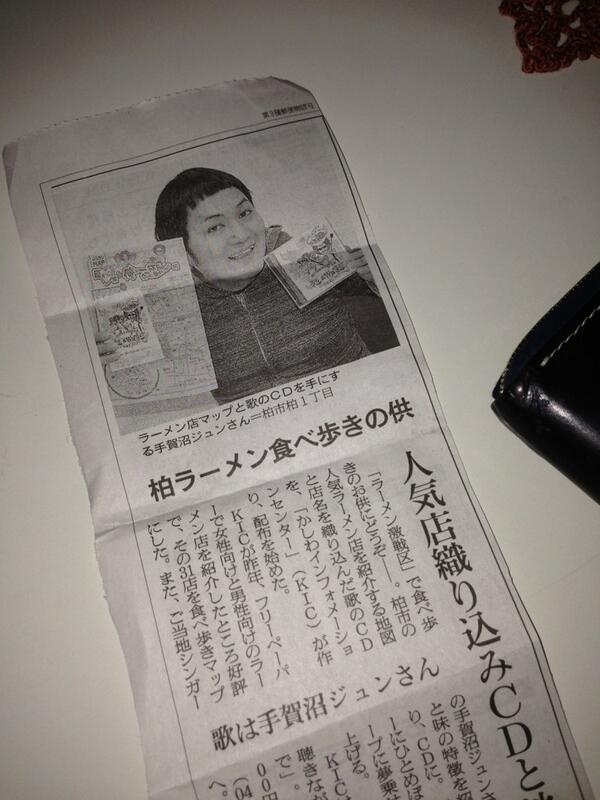 第3種郵便物認可
ラーメン店マップと歌のCDを手にす
る手賀沼ジュンさん=柏市柏1丁目
柏ラーメン食べ歩きの供
人気店織り込みCDと
「ラーメン激戦区」で食べ歩
きのお供にどうぞ――。柏市の
人気ラーメン店を紹介する地図
と店名を織り込んだ歌のCD
を、「かしわインフォメーショ
ンセンター」(KIC)が作
り、配布を始めた。
KICが昨年、フリーペーパ
ーで女性向けと男性向けのラー
メン店を紹介したところ好評
で、その31店を食べ歩きマップ
にした。また、ご当地シンガー
歌は手賀沼ジュンさん
の手賀沼ジュンさ
と味の特徴を
り、CDに。
ーにひとめぼ
ープに夢乗せ
上げる。
KIC
聴きなが
で」。
00円
(04
へ。